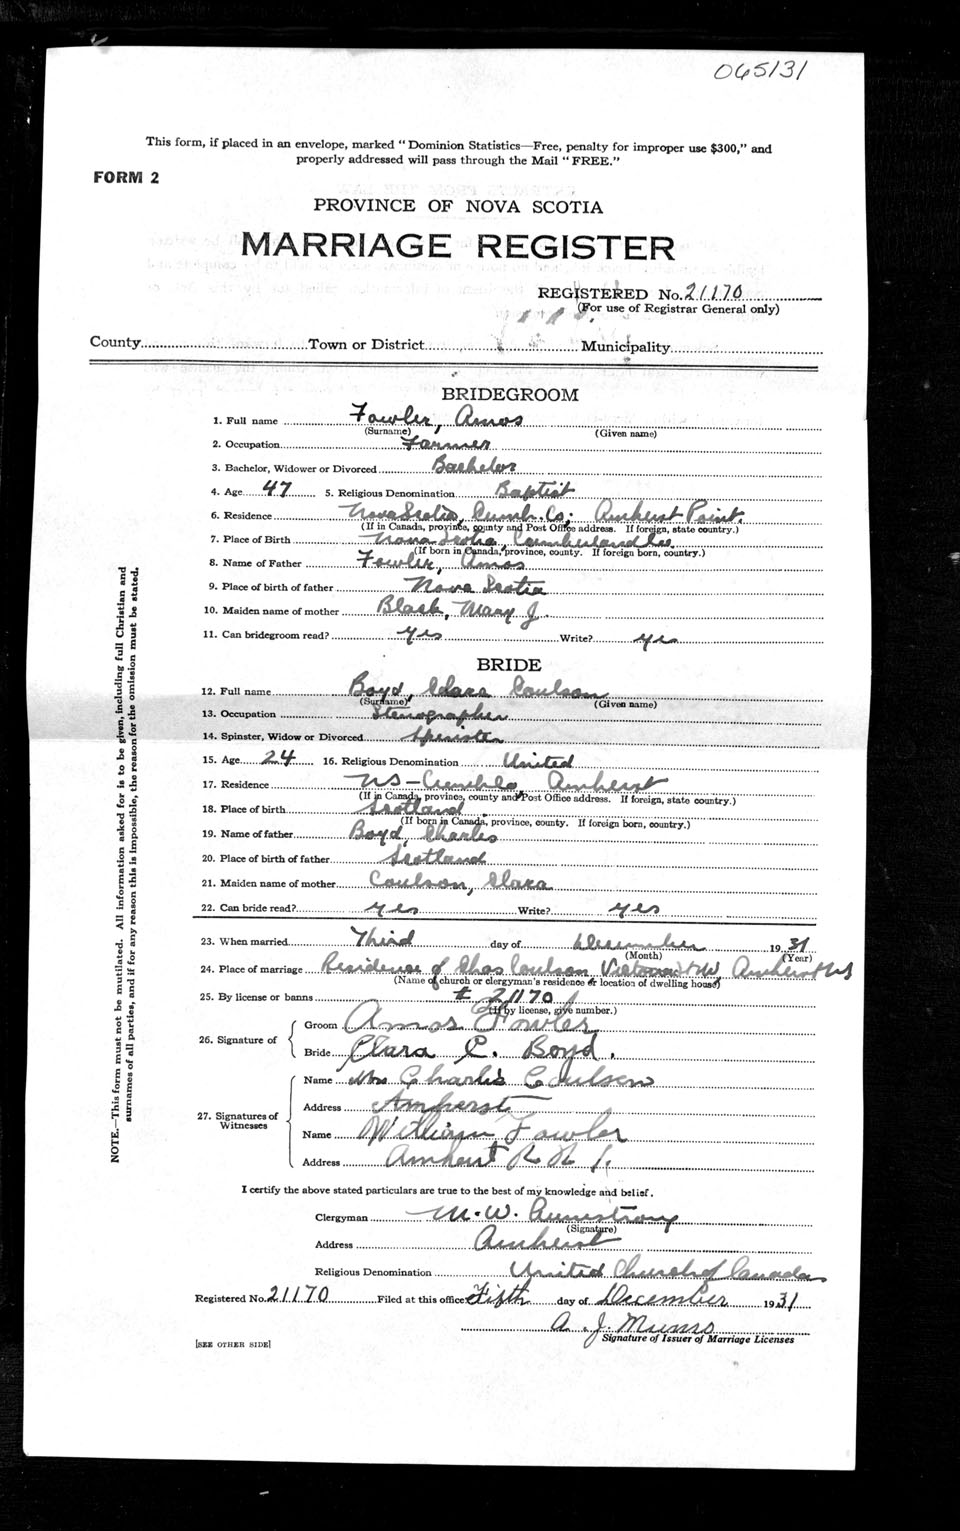 065131
This form, if placed in an envelope, marked "Dominion Statistics—Free, penalty for improper use $300," and
properly addressed will pass through the Mail "FREE."
FORM 2
PROVINCE OF NOVA SCOTIA
MARRIAGE REGISTER
REGISTERED No. 21170
(For use of Registrar General only)
County Town or District Municipality
BRIDEGROOM
1. Full name Fowler, Amos
(Surname) (Given name)
2. Occupation Farmer
3. Bachelor, Widower or Divorced Bachelor
4. Age 47 5. Religious Denomination Baptist
6. Residence Nova Scotia, Cumb. Co; Amherst Point.
(If in Canada, province, county and Post Office address. If foreign, state country.)
7. Place of Birth Nova Scotia, Cumberland Co.
(If born in Canada, province, county. If foreign born, country.)
8. Name of Father Fowler, Amos
9. Place of birth of father Nova Scotia
10. Maiden name of mother Black, Mary J.
11. Can bridegroom read? yes Write? yes
BRIDE
12. Full name Boyd, Clara Coulson
(Surname) (Given name)
13. Occupation Stenographer
14. Spinster, Widow or Divorced Spinster
15. Age 24 16. Religious Denomination United
17. Residence NS- Amherst
(If in Canada, province, county and Post Office address. If foreign, state country.)
18. Place of birth Scotland
(If born in Canada, province, county. If foreign born, country.)
19. Name of father Boyd, Charles
20. Place of birth of father Scotland
21. Maiden name of mother Coulson, Clara
22. Can bride read? yes Write? yes
23. When married Third day of December 1931
(Month) (Year)
24. Place of marriage Residence of Chas Coulson Amherst NS
(Name of church or clergyman's residence or location of dwelling house)
25. By license or banns # 21170
(If by license, give number.)
26. Signature of
Groom Amos Fowler
Bride Clara C. Boyd.
27. Signatures of Witnesses
Name Mrs Charles Coulson
Address Amherst
Name William Fowler
Address Amherst R R 1.
I certify the above stated particulars are true to the best of my knowledge and belief.
Clergyman M. W. Armstrong
(Signature)
Address Amherst
Religious Denomination United Church of Canada
Registered No. 21170 Filed at this office Fifth day of December 1931
A. J. Munro
Signature of Issuer of Marriage Licenses
[SEE OTHER SIDE]
NOTE.—This form must not be mutilated. All information asked for is to be given, including full Christian and
surnames of all parties, and if for any reason this is impossible, the reason for the omission must be stated.